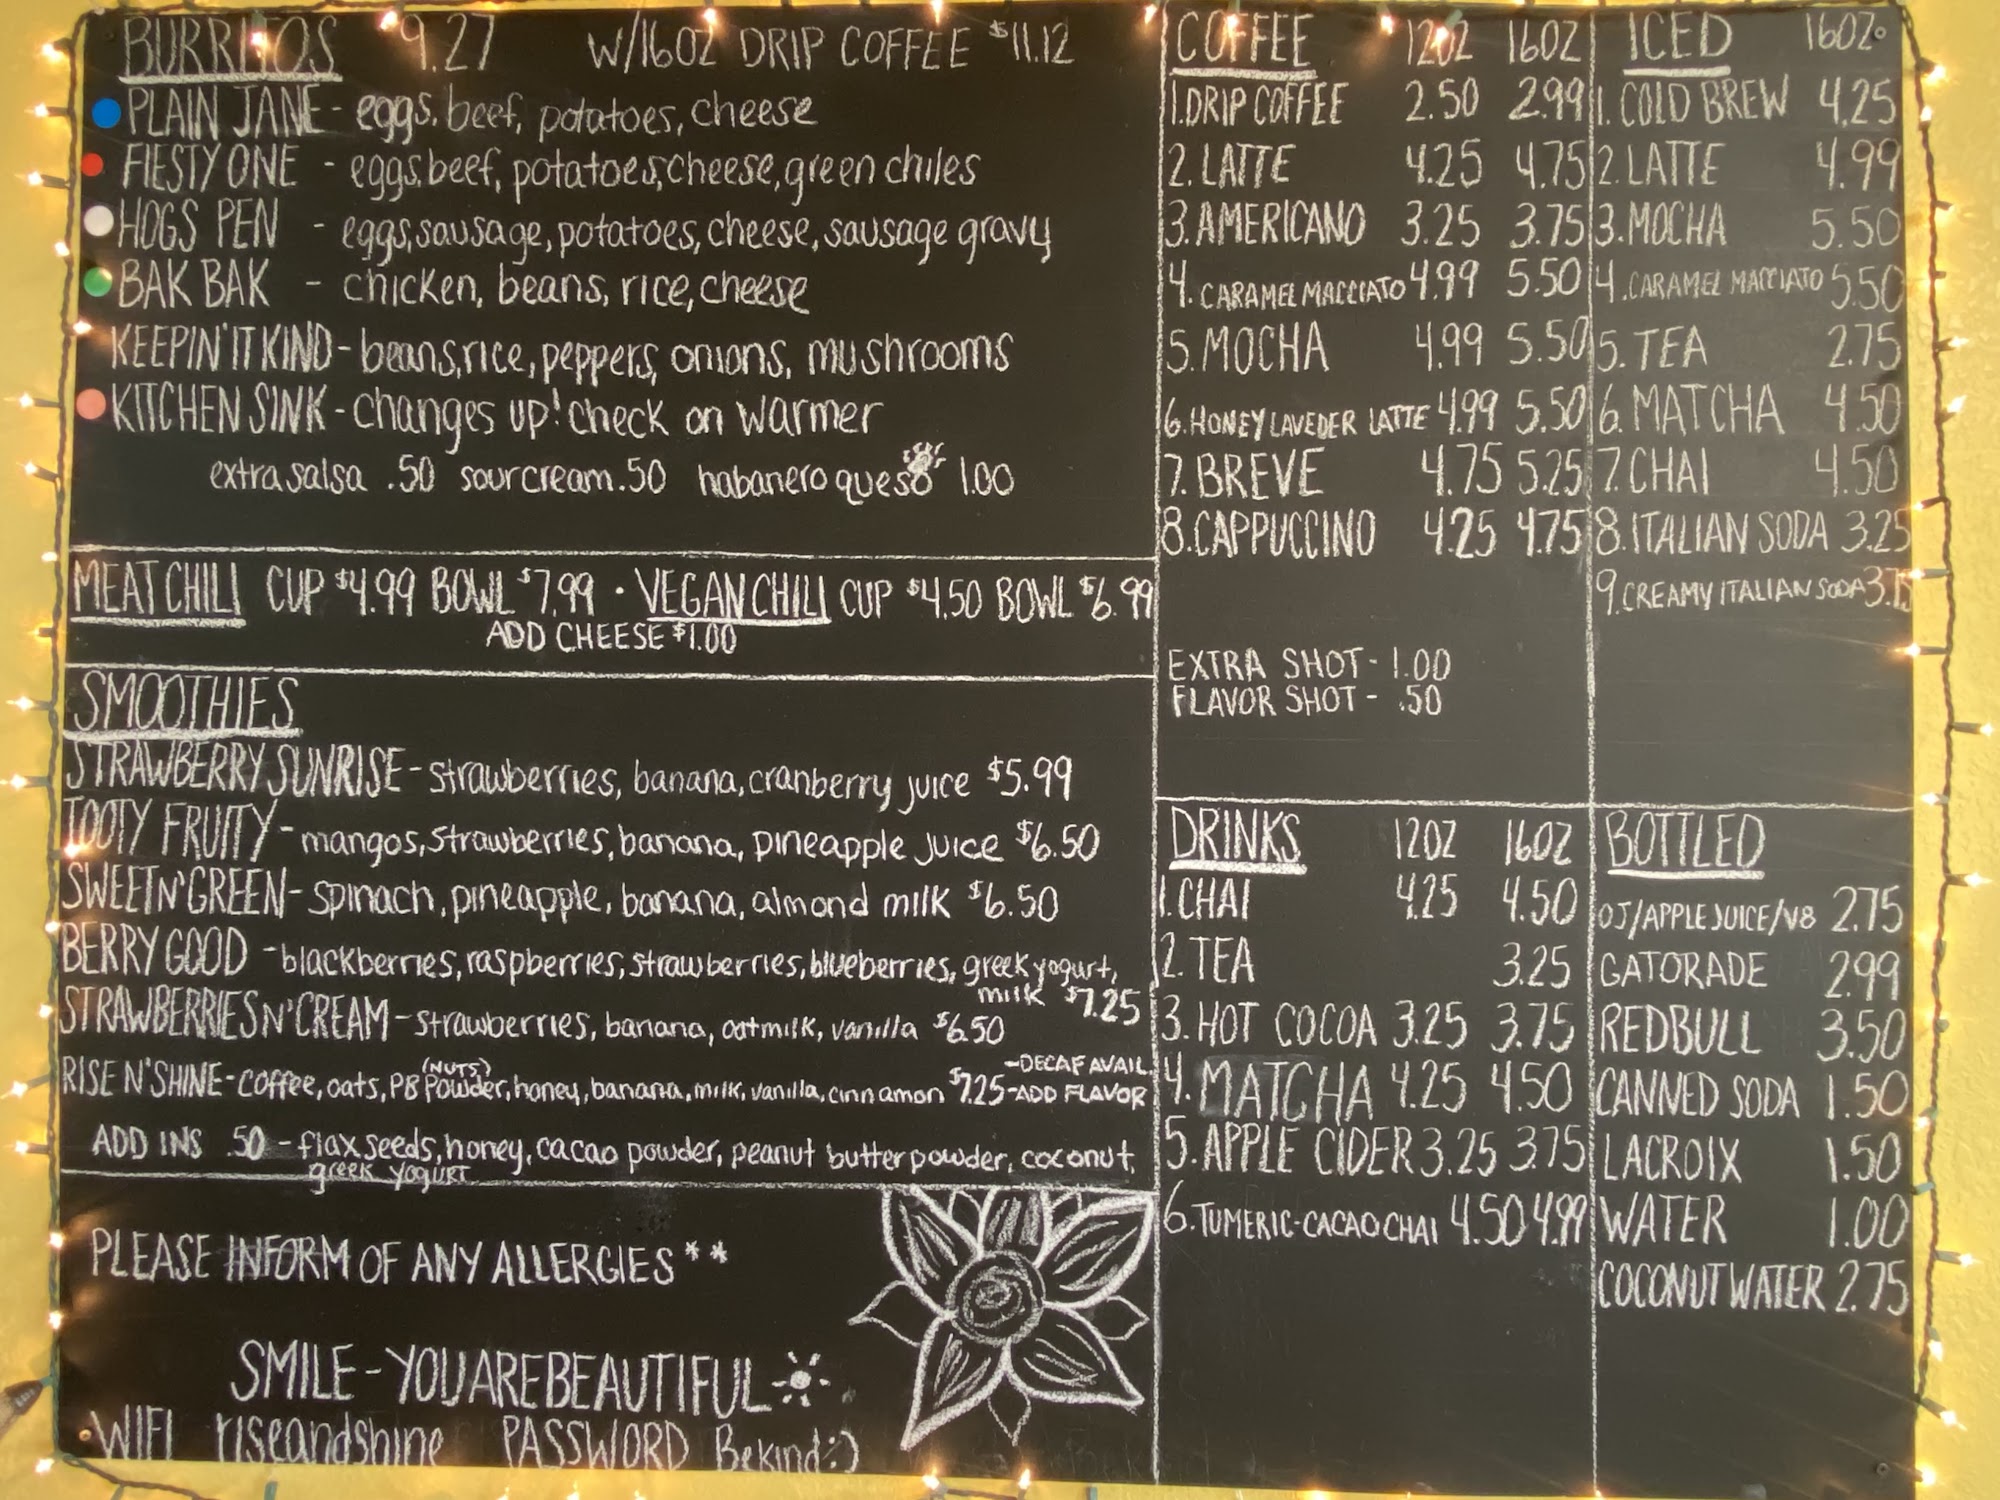 BURRITOS 9.27 W/16OZ DRIP COFFEE $11.12
PLAIN JANE - eggs, beef, potatoes, cheese
FIESTY ONE - eggs, beef, potatoes, cheese, green chiles
HOGS PEN - eggs, sausage, potatoes, cheese, sausage gravy
BAK BAK - chicken, beans, rice, cheese
KEEPIN' IT KIND - beans, rice, peppers, onions, mushrooms
KITCHEN SINK - changes up! check on warmer
extra salsa .50 sour cream .50 habanero queso 1.00
MEAT CHILI CUP $4.99 BOWL $7.99 · VEGAN CHILI CUP $4.50 BOWL $6.99
ADD CHEESE $1.00
SMOOTHIES
STRAWBERRY SUNRISE - strawberries, banana, cranberry juice $5.99
TOOTY FRUITY - mangos, strawberries, banana, pineapple juice $6.50
SWEET N' GREEN - spinach, pineapple, banana, almond milk $6.50
BERRY GOOD - blackberries, raspberries, strawberries, blueberries, greek yogurt,
milk $7.25
STRAWBERRIES N' CREAM - strawberries, banana, oatmilk, vanilla $6.50
(NUTS) - DECAF AVAIL.
RISE N' SHINE - coffee, oats, PB Powder, honey, banana, milk, vanilla, cinnamon $7.25 - ADD FLAVOR
ADD INS .50 - flax seeds, honey, cacao powder, peanut butter powder, coconut,
greek yogurt
PLEASE INFORM OF ANY ALLERGIES**
SMILE - YOU ARE BEAUTIFUL
WIFI riseandshine PASSWORD Bekind:)
COFFEE 12OZ 16OZ
1. DRIP COFFEE 2.50 2.99
2. LATTE 4.25 4.75
3. AMERICANO 3.25 3.75
4. CARAMEL MACCIATO 4.99 5.50
5. MOCHA 4.99 5.50
6. HONEY LAVEDER LATTE 4.99 5.50
7. BREVE 4.75 5.25
8. CAPPUCCINO 4.25 4.75
EXTRA SHOT - 1.00
FLAVOR SHOT - .50
ICED 16OZ
1. COLD BREW 4.25
2. LATTE 4.99
3. MOCHA 5.50
4. CARAMEL MACCIATO 5.50
5. TEA 2.75
6. MATCHA 4.50
7. CHAI 4.50
8. ITALIAN SODA 3.25
9. CREAMY ITALIAN SODA 3.75
DRINKS 12OZ 16OZ
1. CHAI 4.25 4.50
2. TEA 3.25
3. HOT COCOA 3.25 3.75
4. MATCHA 4.25 4.50
5. APPLE CIDER 3.25 3.75
6. TUMERIC-CACAO CHAI 4.50 4.99
BOTTLED
OJ/APPLE JUICE/V8 2.75
GATORADE 2.99
REDBULL 3.50
CANNED SODA 1.50
LACROIX 1.50
WATER 1.00
COCONUT WATER 2.75